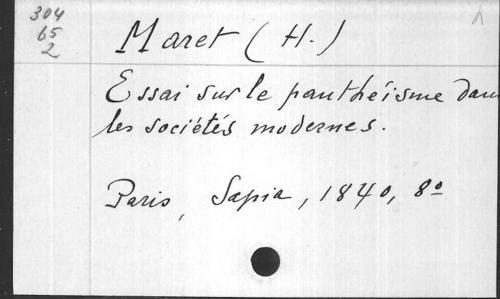 304
65
2
Maret (H.)
Essai sur le panthéisme dans
les sociétés modernes.
Paris, Sapia, 1840, 8º